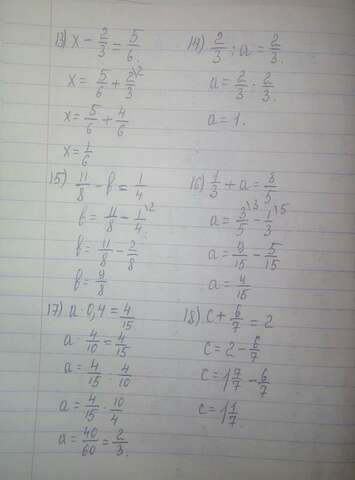 13) x - 2/3 = 5/6.
x = 5/6 + 2/3 \2
x = 5/6 + 4/6
x = 1/6
14) 2/3 : a = 2/3.
a = 2/3 : 2/3.
a = 1.
15) 11/8 - b = 1/4
b = 11/8 - 1/4 \2
b = 11/8 - 2/8
b = 9/8
16) 1/3 + a = 3/5
a = 3/5 \3 - 1/3 \5
a = 9/15 - 5/15
a = 4/15
17) a · 0,4 = 4/15
a · 4/10 = 4/15
a = 4/15 : 4/10
a = 4/15 · 10/4
a = 40/60 = 2/3.
18) c + 6/7 = 2
c = 2 - 6/7
c = 1 7/7 - 6/7
c = 1 1/7.